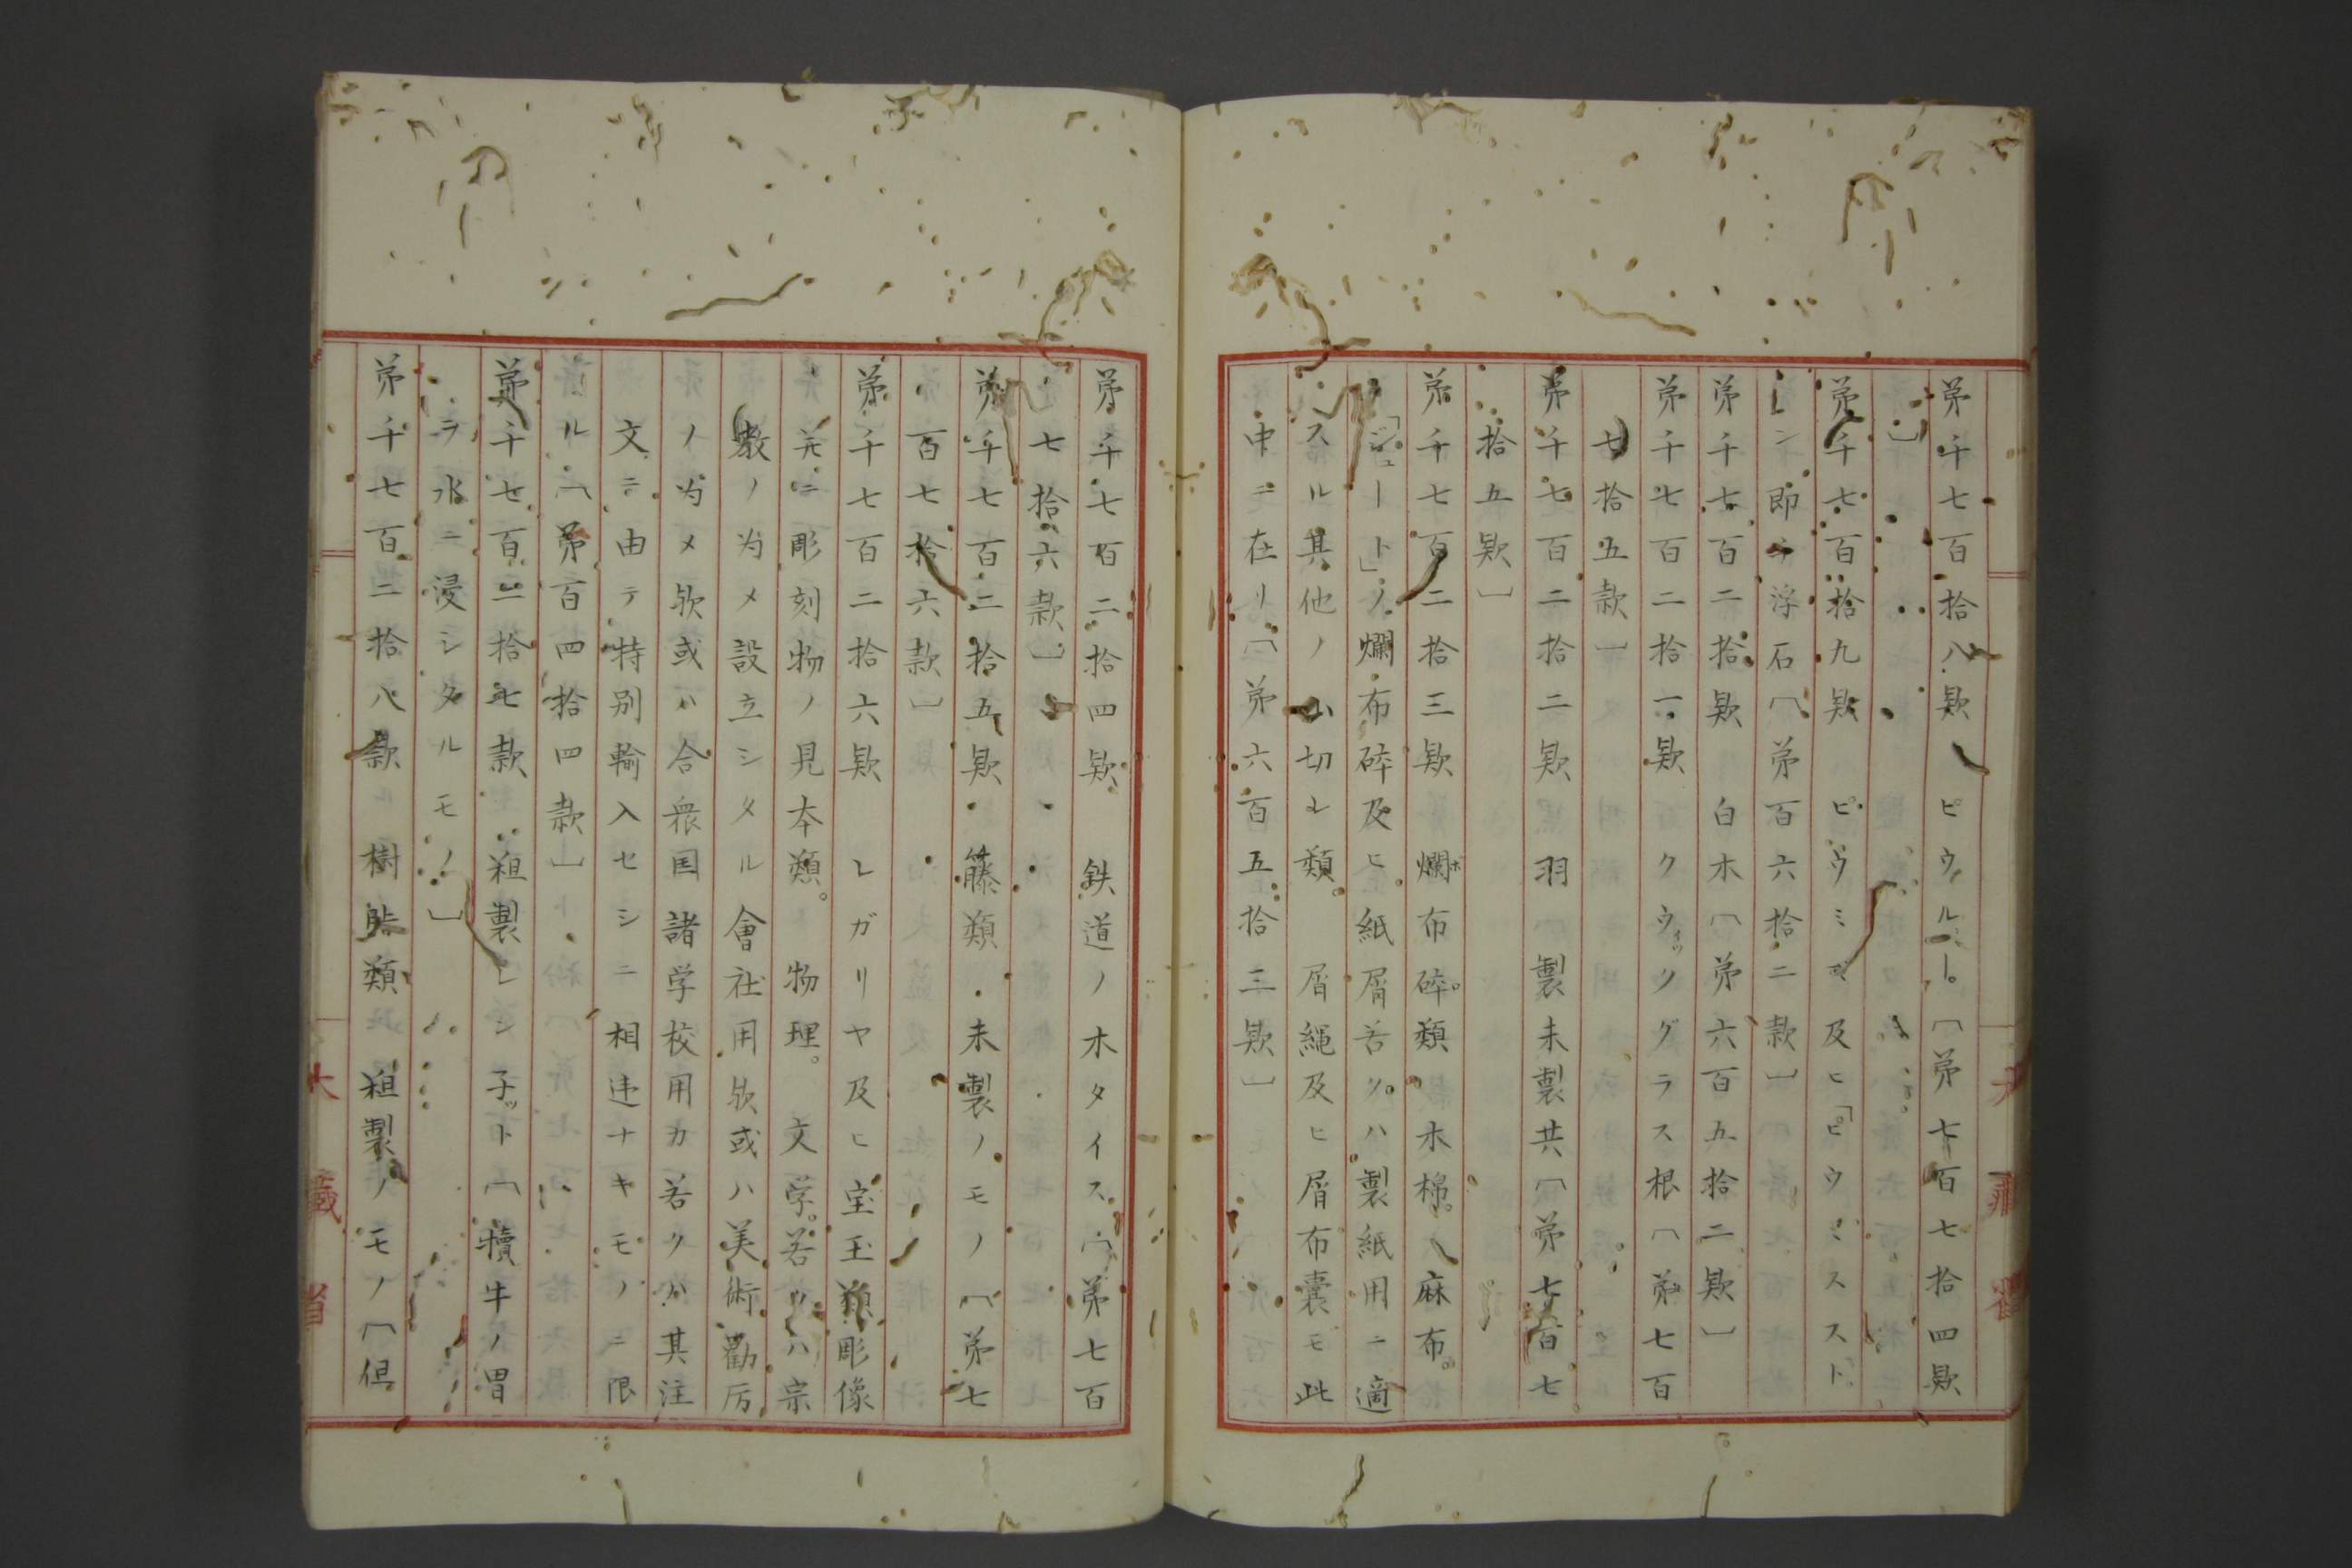 第千七百拾八款　ピウル―。〔第七百七拾四款
〕
第千七百拾九款　ピウミざ及ヒ「ピウミススト
レン即チ浮石〔第百六拾二款〕
第千七百二拾款　白木〔第六百五拾二款〕
第千七百二拾一款　クウィックグラス根〔第七百
七拾五款〕
第千七百二拾二款　羽　製未製共〔第七百七
拾五款〕
第千七百二拾三款　爛布碎。類　木棉。　麻布。
「ジュート」ノ爛布碎及ヒ紙屑若ク。ハ製紙用ニ適
スル其他ノ小切レ類。　屑縄及ヒ屑布嚢モ此
中ニ在リ〔第六百五拾三款〕
第千七百二拾四款　鉄道ノ木タイス〔第七百
七拾六款〕
第千七百二拾五款　籐類　未製ノモノ〔第七
百七拾六款〕
第千七百二拾六款　レガリヤ及ヒ宝玉類彫像
并ニ彫刻物ノ見本類。　物理。　文学。若クハ宗
教ノ为メ設立シタル會社用欤或ハ美術勸厉
ノ为メ欤或ハ合衆国諸学校用カ若クハ其注
文ニ由テ特別輸入セシニ相違ナキモノニ限
ル〔第百四拾四款〕
第千七百二拾七款　粗製レン子ット〔犢牛ノ胃
ヲ水ニ浸シタルモノ〕
第千七百二拾八款　樹脂類　粗製ノモノ〔但
大藏省